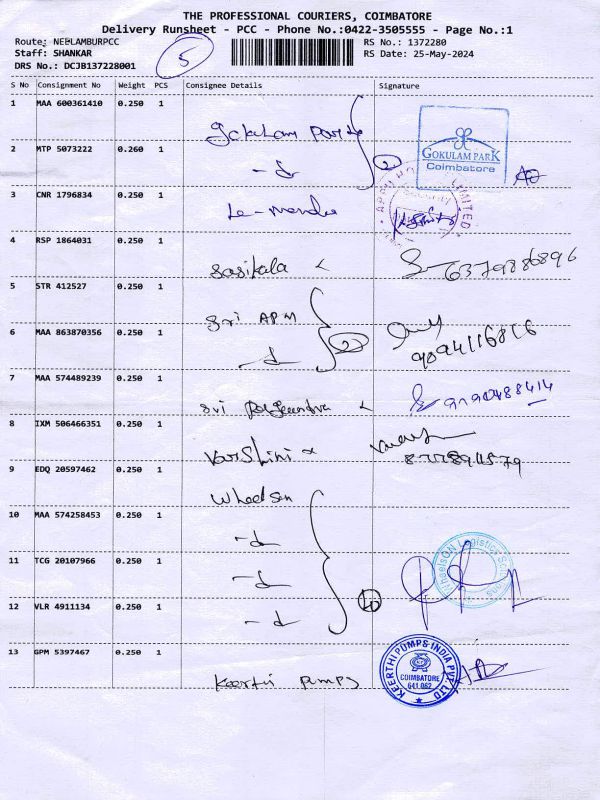 THE PROFESSIONAL COURIERS, COIMBATORE
Delivery Runsheet - PCC - Phone No.:0422-3505555 - Page No.:1
Route: NEELAMBURPCC
Staff: SHANKAR
DRS No.: DCJB137228001
5
RS No.: 1372280
RS Date: 25-May-2024
S No Consignment No Weight PCS Consignee Details Signature
1 MAA 600361410 0.250 1
Gokulam Park
GOKULAM PARK
Coimbatore
2 MTP 5073222 0.260 1
2
3 CNR 1796834 0.250 1
LIMITED
4 RSP 1864031 0.250 1
Sasikala
6379886896
5 STR 412527 0.250 1
Sri APM
6 MAA 863870356 0.250 1
2
9094116816
7 MAA 574489239 0.250 1
Sri
9190488414
8 IXM 506466351 0.250 1
Varshini
9 EDQ 20597462 0.250 1
10 MAA 574258453 0.250 1
11 TCG 20107966 0.250 1
WheelsON Logistics
12 VLR 4911134 0.250 1
13 GPM 5397467 0.250 1
Keerthi Pumps
KEERTHI PUMPS INDIA PVT. LTD
COIMBATORE
641 062